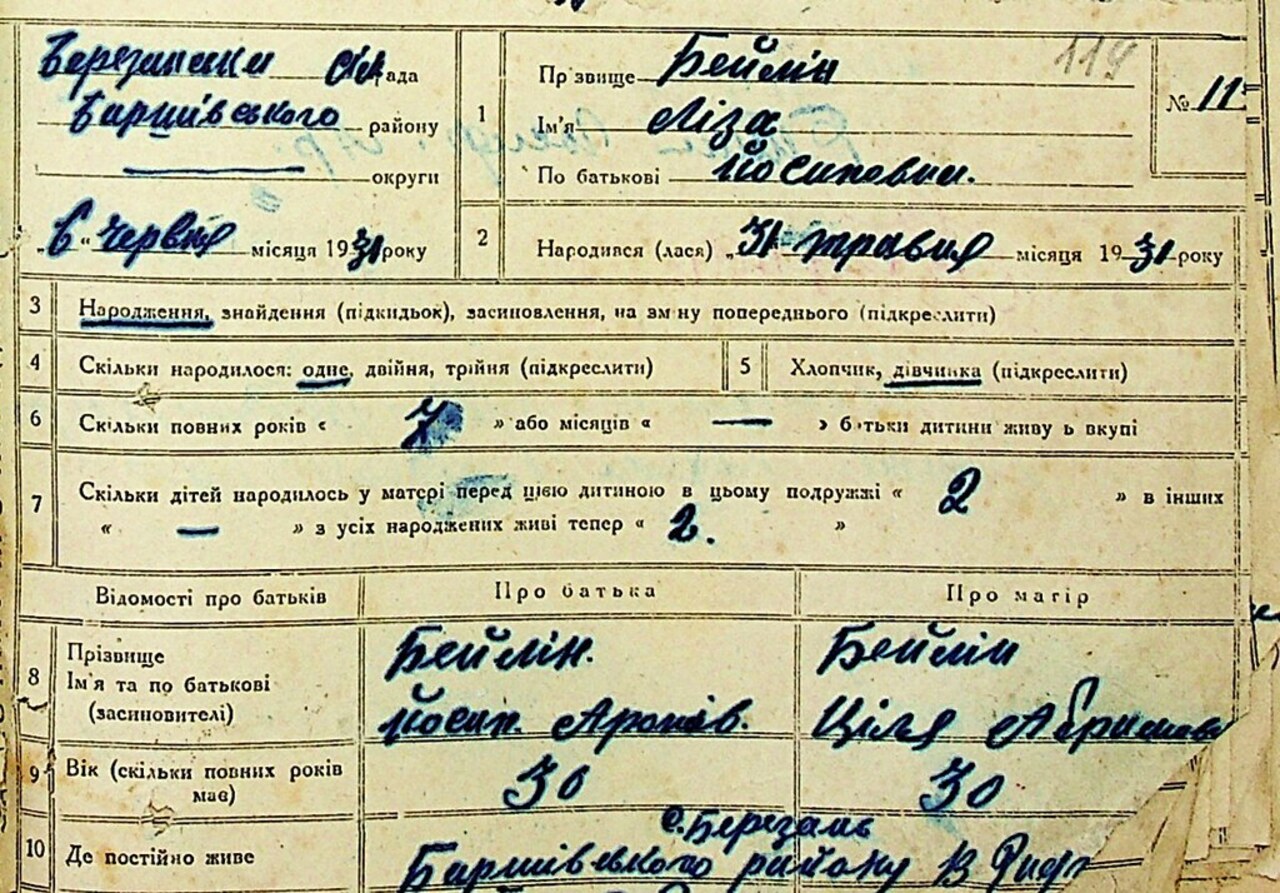 Березанська с/рада
Баришівського району
округи
„6“ червня місяця 1931 року
1
Прізвище Бейлін
Ім'я Ліза
По батькові Йосиповн.
119
№ 11
2
Народився (лася) „31 травня місяця 1931 року
3 Народження, знайдення (підкидьок), засиновлення, на зміну попереднього (підкреслити)
4 Скільки народилося: одне, двійня, трійня (підкреслити)
5 Хлопчик, дівчинка (підкреслити)
6 Скільки повних років « 7 » або місяців « — » батьки дитини живуть вкупі
7 Скільки дітей народилось у матері перед цією дитиною в цьому подружжі « 2 » в інших
« — » з усіх народжених живі тепер « 2. »
Відомості про батьків Про батька Про матір
8 Прізвище
Ім'я та по батькові
(засиновителі)
Бейлін.
Йосип. Аронов.
Бейлін
Ціля Абрамов
9 Вік (скільки повних років
має)
30 30
10 Де постійно живе
с. Березань
Баришівського району